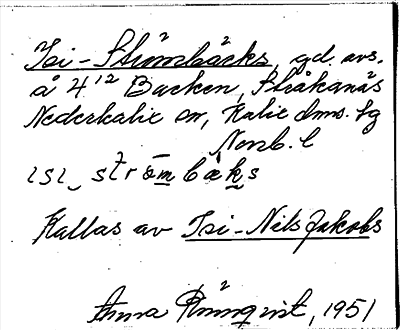 Isi-Strömbäcks, gd. avs.
å 4¹² Backen, Stråkanäs
Nederkalix sn, Kalix dms. tg
Norrb. l
isi strömbäks
Kallas av Isi-Nils Jakobs
Anna Rönnqvist, 1951